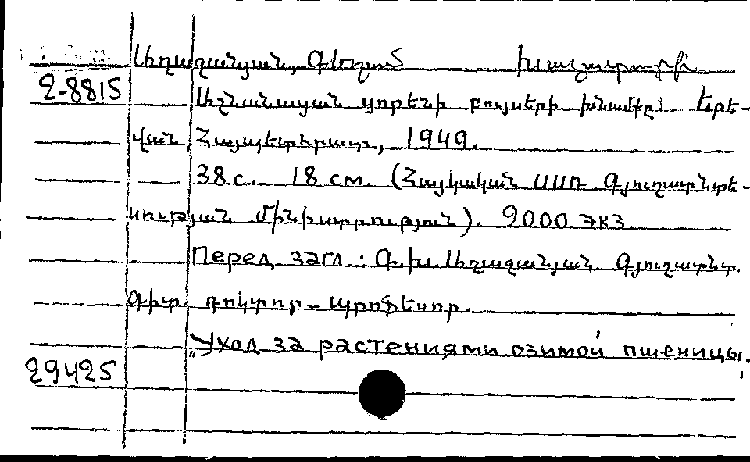 Աղաջանյան, Գեղամ Խաչատուրի
2-8815
Աշնանացան ցորենի բույսերի խնամքը. Երե-
վան, Հայպետհրատ, 1949.
38 с. 18 см. (Հայկական ՍՍՌ Գյուղատնտե-
սության Մինիստրություն). 2000 экз
Перед загл.: Գ. Խ. Աղաջանյան Գյուղատնտ.
գիտ. դոկտոր-պրոֆեսոր.
„Уход за растениями озимой пшеницы.
29425